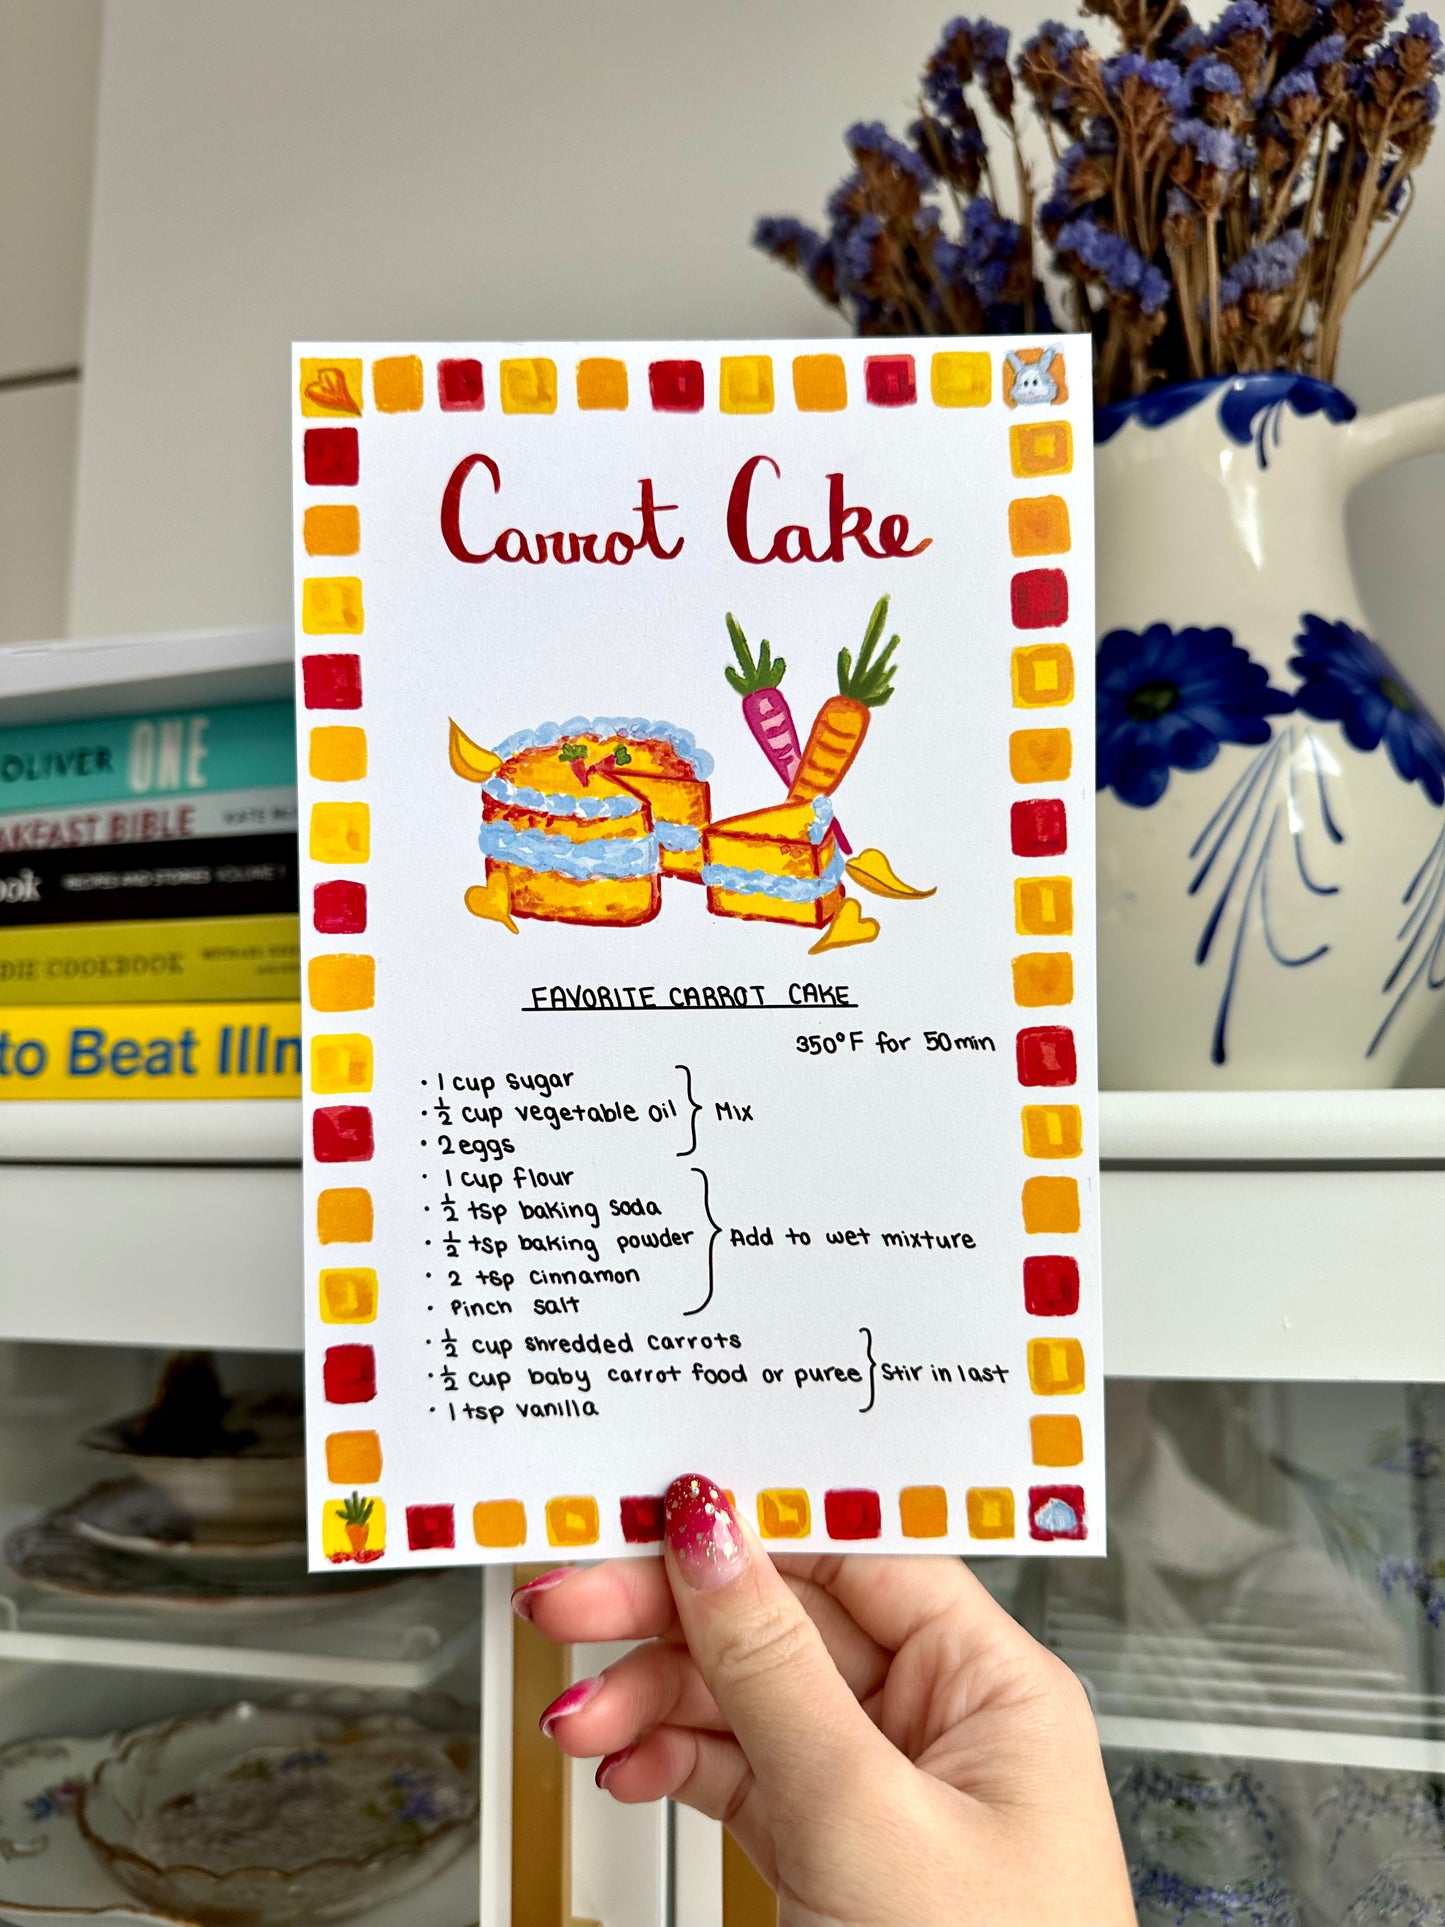 Carrot Cake
FAVORITE CARROT CAKE
350°F for 50min
• 1 cup sugar
• ½ cup vegetable oil } Mix
• 2 eggs
• 1 cup flour
• ½ tsp baking soda
• ½ tsp baking powder } Add to wet mixture
• 2 tsp cinnamon
• Pinch salt
• ½ cup shredded carrots
• ½ cup baby carrot food or puree } Stir in last
• 1 tsp vanilla
OLIVER ONE
AKFEAST BIBLE KATE
ook RECIPES AND STORIES VOLUME 1
DIE COOKBOOK
to Beat Illn